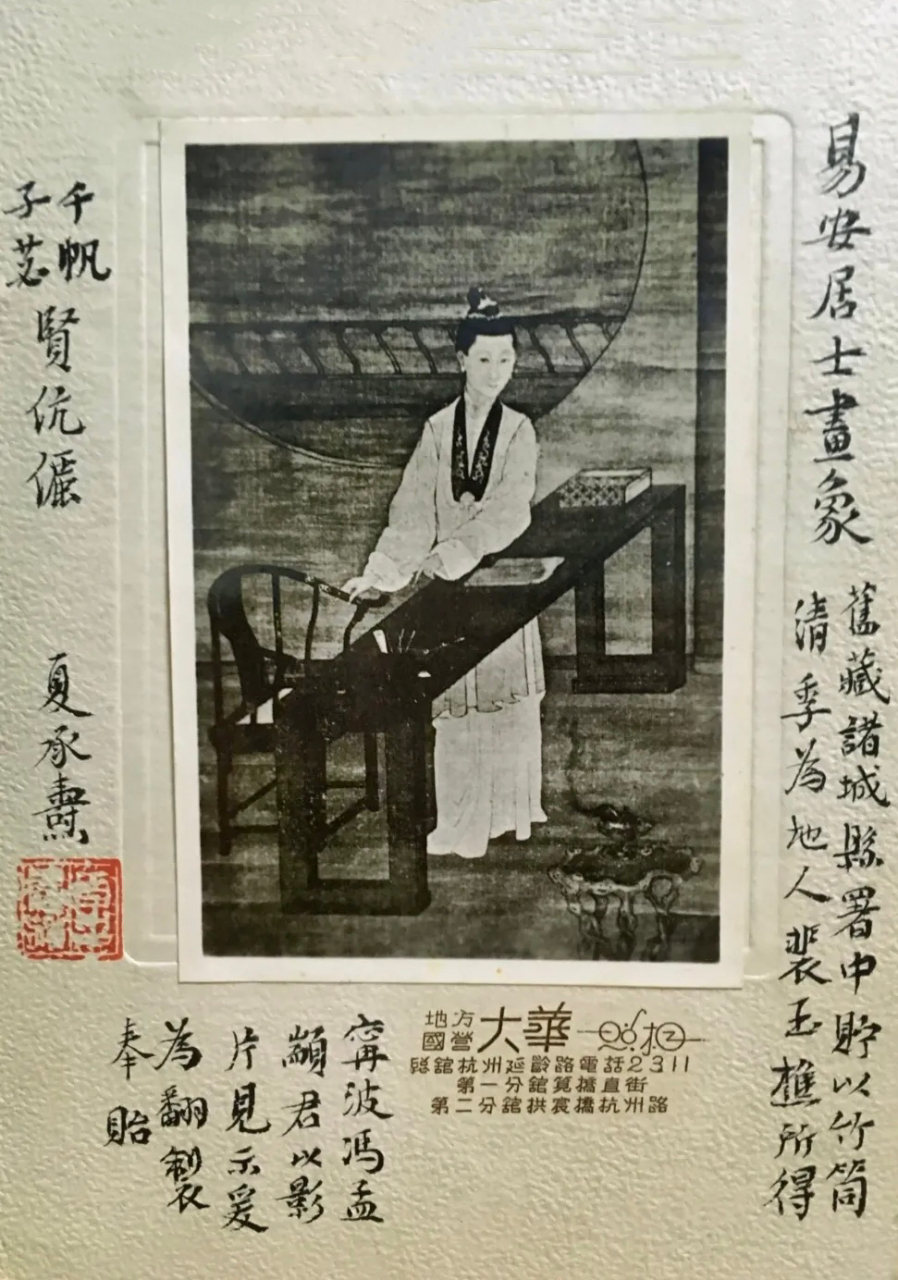 易安居士畫象
舊藏諸城縣署中貯以竹筒
清季為地人裴玉樵所得
甯波馮孟
顓君以影
片見示爰
為翻製
奉貽
千帆
子苾
賢伉儷
夏承燾
地方
國營
大華照相
總館杭州延齡路電話2311
第一分館筧橋直街
第二分館拱宸橋杭州路